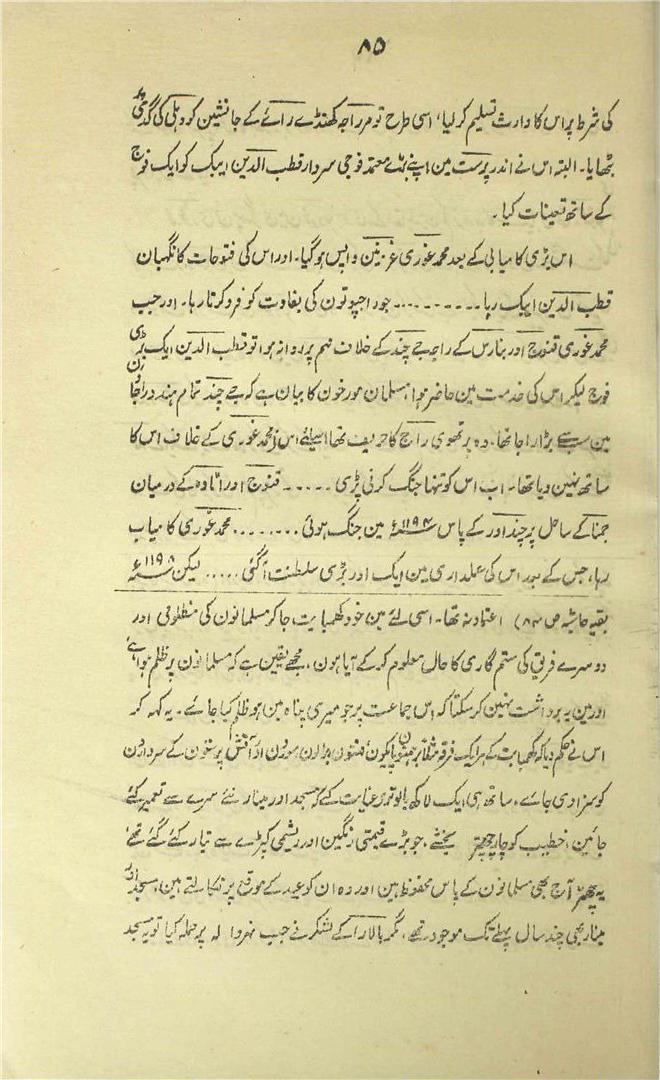 ۸۵
کی شرط پر اس کا وارث تسلیم کر لیا، اسی طرح تومر راجہ کھنڈے رائے کے جانشین کو دہلی کی گدی پر
بٹھایا۔ البتہ اس نے اندر پرست مین اپنے بڑے معتمد فوجی سردار قطب الدین ایبک کو ایک فوج
کے ساتھ تعینات کیا۔
اس بڑی کامیابی کے بعد محمد غوری غزنین واپس ہو گیا۔ اور اس کی فتوحات کا نگہبان
قطب الدین ایبک رہا .......... جو راجپوتون کی بغاوت کو فرو کرتا رہا۔ اور جب
محمد غوری قنوج اور بنارس کے راجہ جے چند کے خلاف مہم پر روانہ ہوا تو قطب الدین ایک بڑی
فوج لیکر اس کی خدمت مین حاضر ہوا، مسلمان مورخون کا بیان ہے کہ جے چند تمام ہندو راجاؤن
مین سب سے بڑا راجا تھا۔ وہ پرتھوی راج کا حریف تھا اسلیے اس نے محمد غوری کے خلاف اس کا
ساتھ نہین دیا تھا۔ اب اس کو تنہا جنگ کرنی پڑی ..... قنوج اور اٹاوہ کے درمیان
جمنا کے ساحل پر چنداور کے پاس ۱۱۹۴ء مین جنگ ہوئی ........ محمد غوری کامیاب
رہا، جس کے بعد اس کی عملداری مین ایک اور بڑی سلطنت آ گئی ..... لیکن ۱۱۹۸ء
بقیہ حاشیہ ص ۸۴) اعتماد نہ تھا۔ اسی لئے مین خود کھمبایت جا کر مسلمانون کی مظلومی اور
دوسرے فریق کی ستم گاری کا حال معلوم کر کے آیا ہون، مجھے یقین ہے کہ مسلمانون پر ظلم ہوا ہے،
اور مین یہ برداشت نہین کر سکتا کہ اس جماعت پر جو میری پناہ مین ہو ظلم کیا جائے۔ یہ کہہ کر
اس نے حکم دیا کہ کھمبایت کے ہر ایک فرقہ مثلاً برہمنون اور آتش پرستون کے سردارون
کو سزا دی جائے، ساتھ ہی ایک لاکھ بالوتری عنایت کئے کہ مسجد اور مینار نئے سرے سے تعمیر کئے
جائین، خطیب کو چار چھتر بخشے، جو بڑے قیمتی رنگین اور ریشمی کپڑے سے تیار کئے گئے تھے
یہ چھتر آج بھی مسلمانون کے پاس محفوظ ہین اور وہ ان کو عید کے موقع پر نکالتے ہین، مسجد اور
مینار بھی چند سال پہلے تک موجود تھے، مگر بالا را کے لشکر نے جب نہروالہ پر حملہ کیا تو یہ مسجد